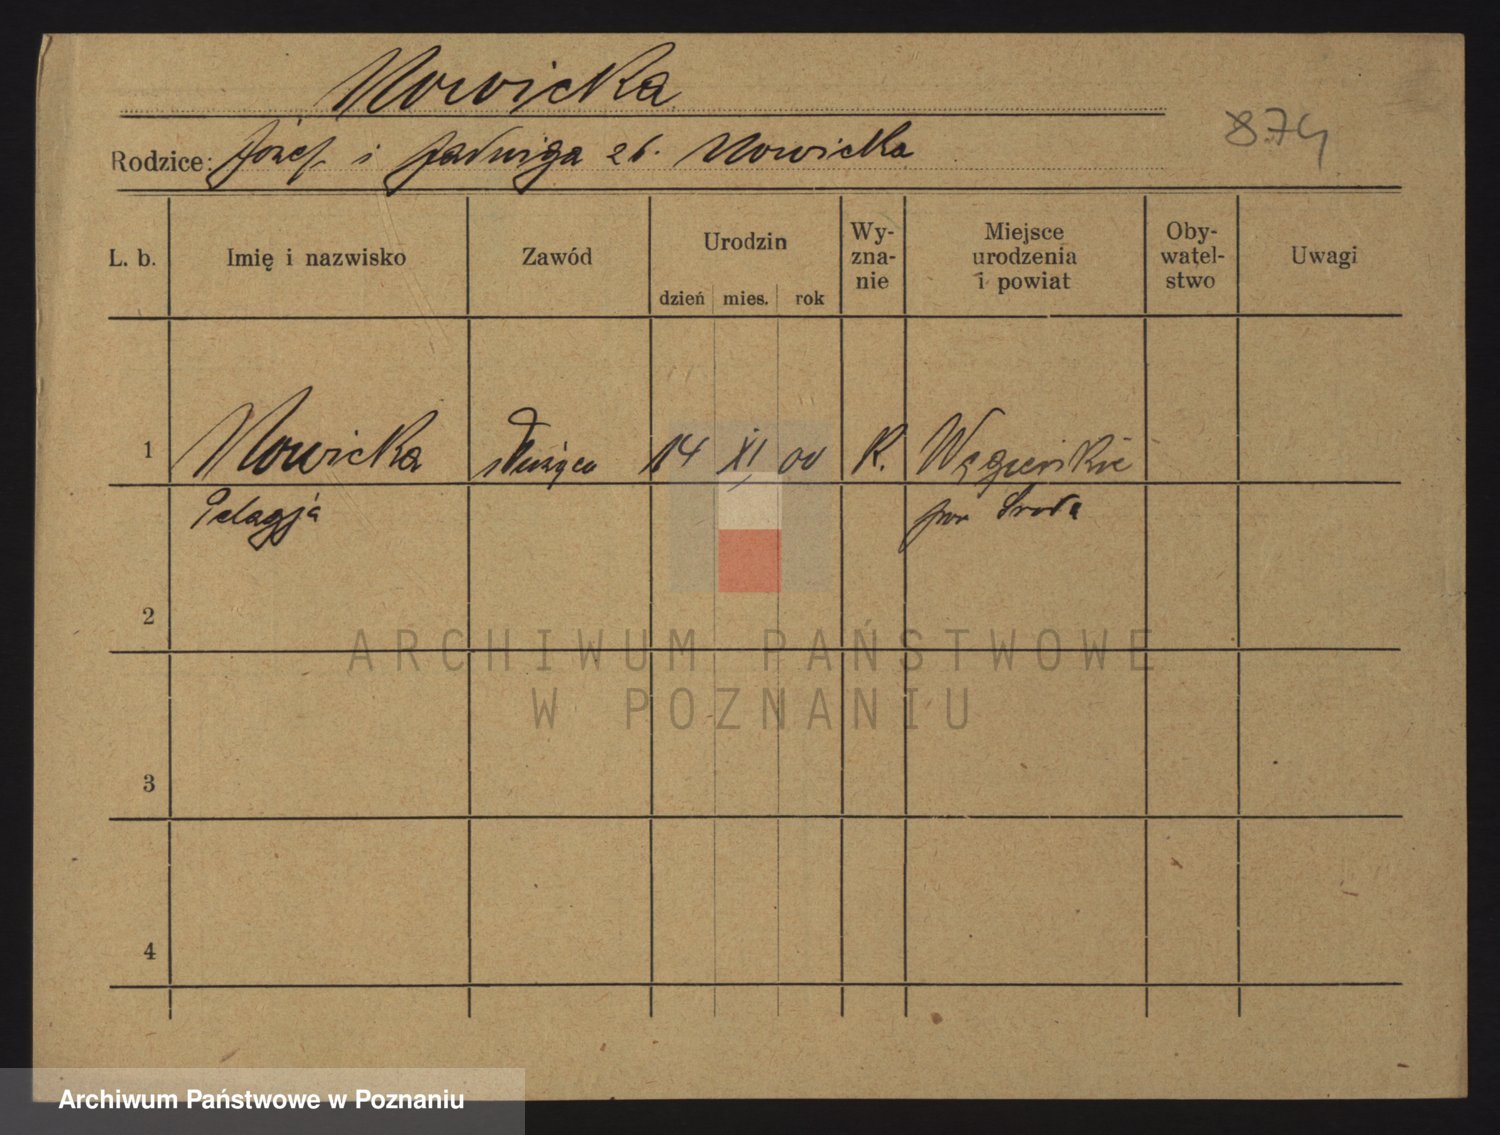 Nowicka
874
Rodzice: Józef i Jadwiga zd. Nowicka
L. b.
Imię i nazwisko
Zawód
Urodzin
dzień mies. rok
Wy-
zna-
nie
Miejsce
urodzenia
i powiat
Oby-
watel-
stwo
Uwagi
1 Nowicka służąca 14 XI 00 R. Węgierskie
Pelagja pow Środa
2
3
4
ARCHIWUM PAŃSTWOWE
W POZNANIU
Archiwum Państwowe w Poznaniu